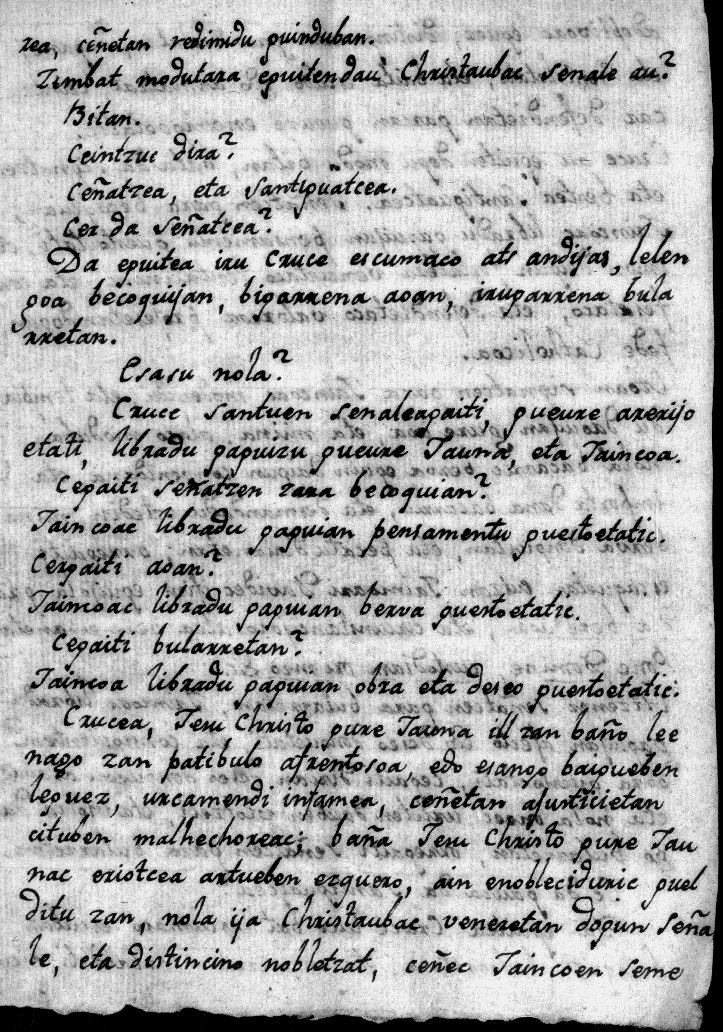 rea, ceñetan redimidu guinduban.
Zembat modutara eguiten dau Christaubac senale au?
Bitan.
Ceintzuc dira?
Ceñatzea, eta Santiguatcea.
Cer da señatcea?
Da eguitea iru cruce escumaco ats andijas, lelen
goa becoquijan, bigarrena aoan, irugarrena bula
rretan.
Esasu nola?
Cruce santuen senaleagaiti, gueure arerijo
etati, libradu gaguizu gueure Jauna, eta Jaincoa.
Cegaiti señatzen zara becoquian?
Jaincoac libradu gaguian pensamentu guestoetatic.
Cergaiti aoan?
Jaincoac libradu gaguian berva guestoetatic.
Cegaiti bularretan?
Jaincoa libradu gaguian obra eta deseo guestoetatic.
Crucea, Jesu Christo gure Jauna ill zan baño lee
nago zan patibulo afrentosoa, edo esango baigueben
leguez, urcamendi infamea, ceñetan ajusticietan
cituben malhechoreac; baña Jesu Christo gure Jau
nac eriotcea artueben ezquero, ain enobleciduric guel
ditu zan, nola ija Christaubac veneretan dogun seña
le, eta distincino nobletzat, ceñec Jaincoen seme